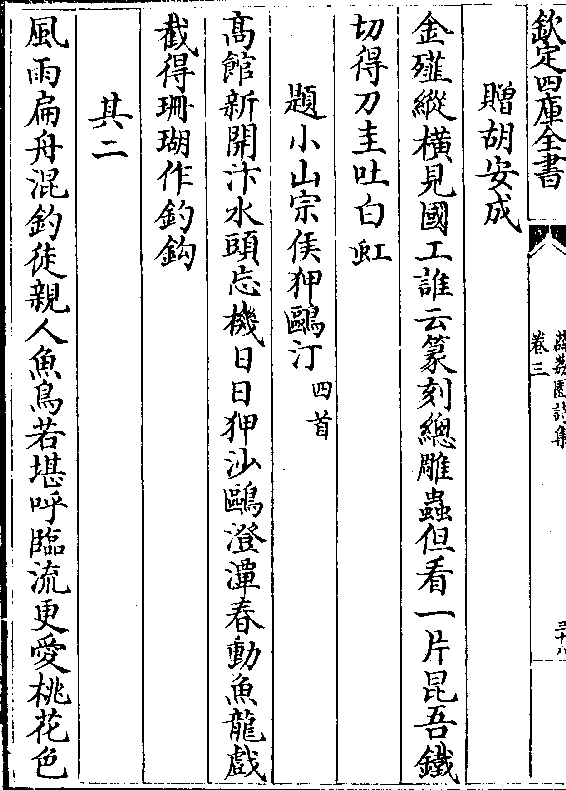 欽定四庫全書
薜荔園詩集
卷三
三十八
贈胡安成
金薤縱橫見國工誰云篆刻總雕蟲但看一片昆吾鐵
切得刀圭吐白虹
題小山宗侯狎鷗汀四首
高館新開汴水頭忘機日日狎沙鷗澄潭春動魚龍戲
截得珊瑚作釣鈎
其二
風雨扁舟混釣徒親人魚鳥若堪呼臨流更愛桃花色